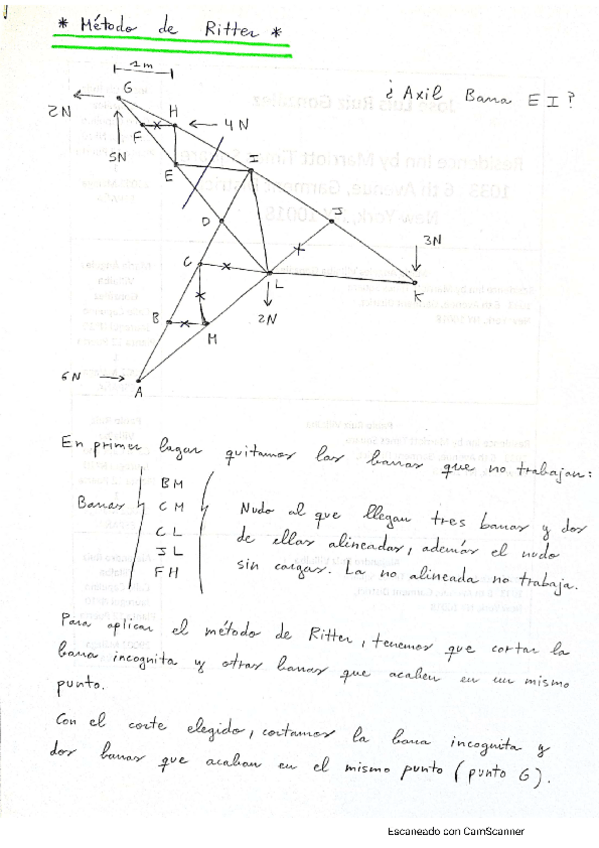 * Método de Ritter *
1m
¿ Axil Barra E I ?
G
2N
H
4N
F
5N
E
I
D
J
3N
C
L
K
2N
B
M
6N
A
En primer lugar quitamos las barras que no trabajan:
Barras
BM
CM
CL
JL
FH
Nudo al que llegan tres barras y dos
de ellas alineadas, además el nudo
sin cargas. La no alineada no trabaja.
Para aplicar el método de Ritter, tenemos que cortar la
barra incognita y otras barras que acaben en un mismo
punto.
Con el corte elegido, cortamos la barra incognita y
dos barras que acaban en el mismo punto (punto G).
Escaneado con CamScanner